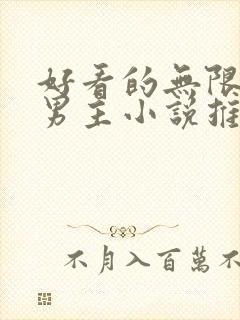 好看的無限
男主小說推
不月入百萬不